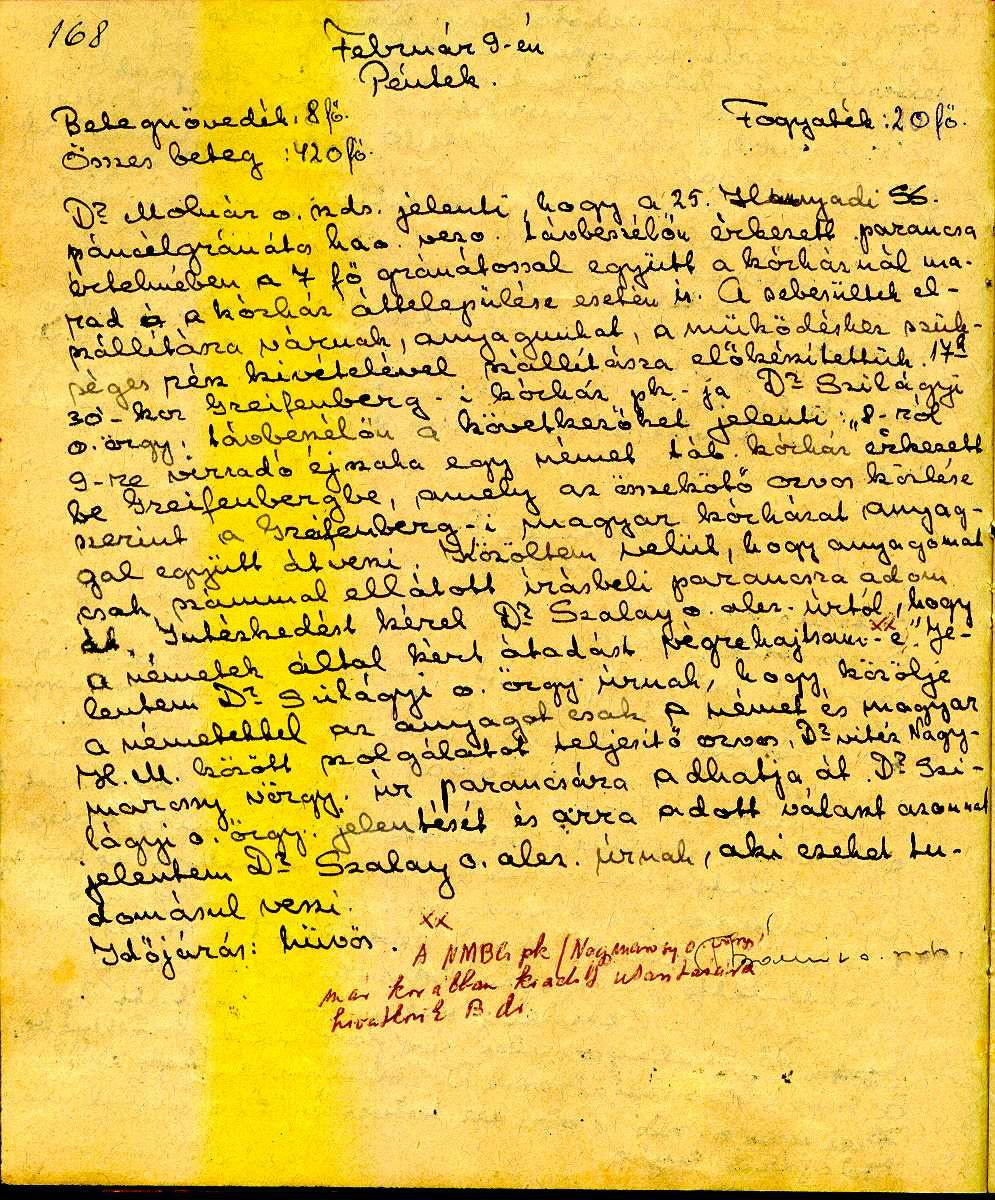 168
Február 9-én
Péntek.
Betegnövedék: 8 fő. Fogyaték: 20 fő.
Összes beteg: 420 fő.
Dr. Molnár o. zds. jelenti, hogy a 25. Hunyadi SS.
páncélgránátos hao. vezo. távbeszélőn érkezett parancsa
értelmében a 7 fő gránátossal együtt a kórháznál ma-
rad a kórház áttelepülése esetén is. A sebesültek el-
szállításra várnak, anyagunkat, a működéshez szük-
séges rész kivételével szállításra előkészítettük. 17 h
30'-kor Greifenberg-i kórház pk-ja Dr. Szilágyi
o. örgy. távbeszélőn a következőket jelenti: „8-ról
9-re virradó éjszaka egy német táb. kórház érkezett
be Greifenbergbe, amely az összekötő orvos közlése
szerint a Greifenberg-i magyar kórházat anyag-
gal együtt átveszi. Közöltem velük, hogy anyagomat
csak számmal ellátott írásbeli parancsra adom
át. Intézkedést kérek Dr. Szalay o. alez. úrtól, hogy
a németek által kért átadást végrehajtsam-é." xx Je-
lentem Dr. Szilágyi o. örgy. úrnak, hogy közölje
a németekkel az anyagot csak a német és magyar
H. M. között szolgálatot teljesítő orvos, Dr. vitéz Nagy-
marcsy vörgy. úr parancsára adhatja át. Dr. Szi-
lágyi o. örgy. jelentését és arra adott választ azonnal
jelentem Dr. Szalay o. alez. úrnak, aki ezeket tu-
domásul veszi.
Időjárás: hűvös.
xx
A NMBCs pk (Nagymarcsy o.
már korábban kiadott utasítására
hivatkozik B. dr.